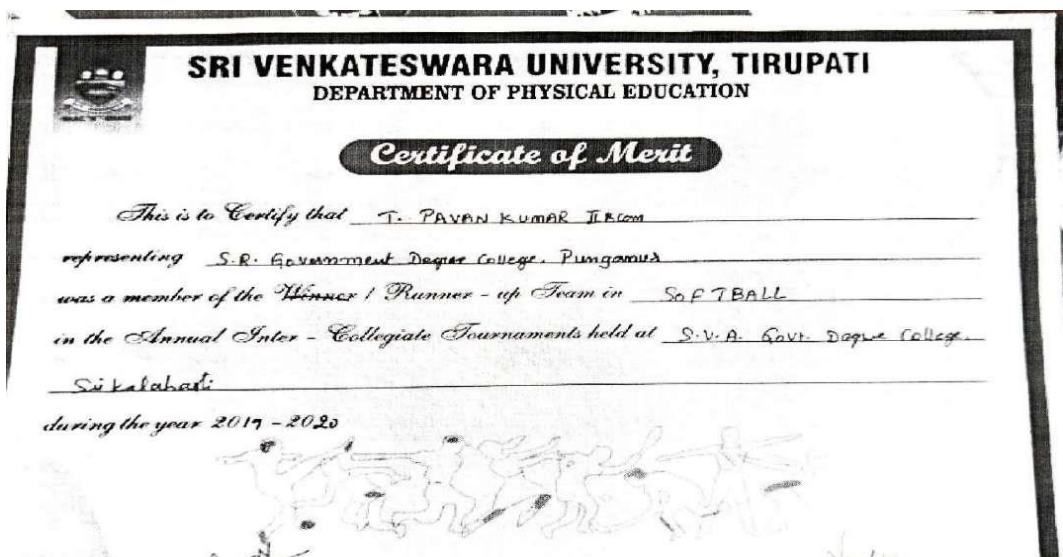 SRI VENKATESWARA UNIVERSITY, TIRUPATI
DEPARTMENT OF PHYSICAL EDUCATION
Certificate of Merit
This is to Certify that T. PAVAN KUMAR II BCom
representing S.R. Government Degree College, Punganur
was a member of the Winner / Runner - up Team in SOFTBALL
in the Annual Inter - Collegiate Tournaments held at S.V.A. Govt. Degree College,
Srikalahasti
during the year 2019 - 2020